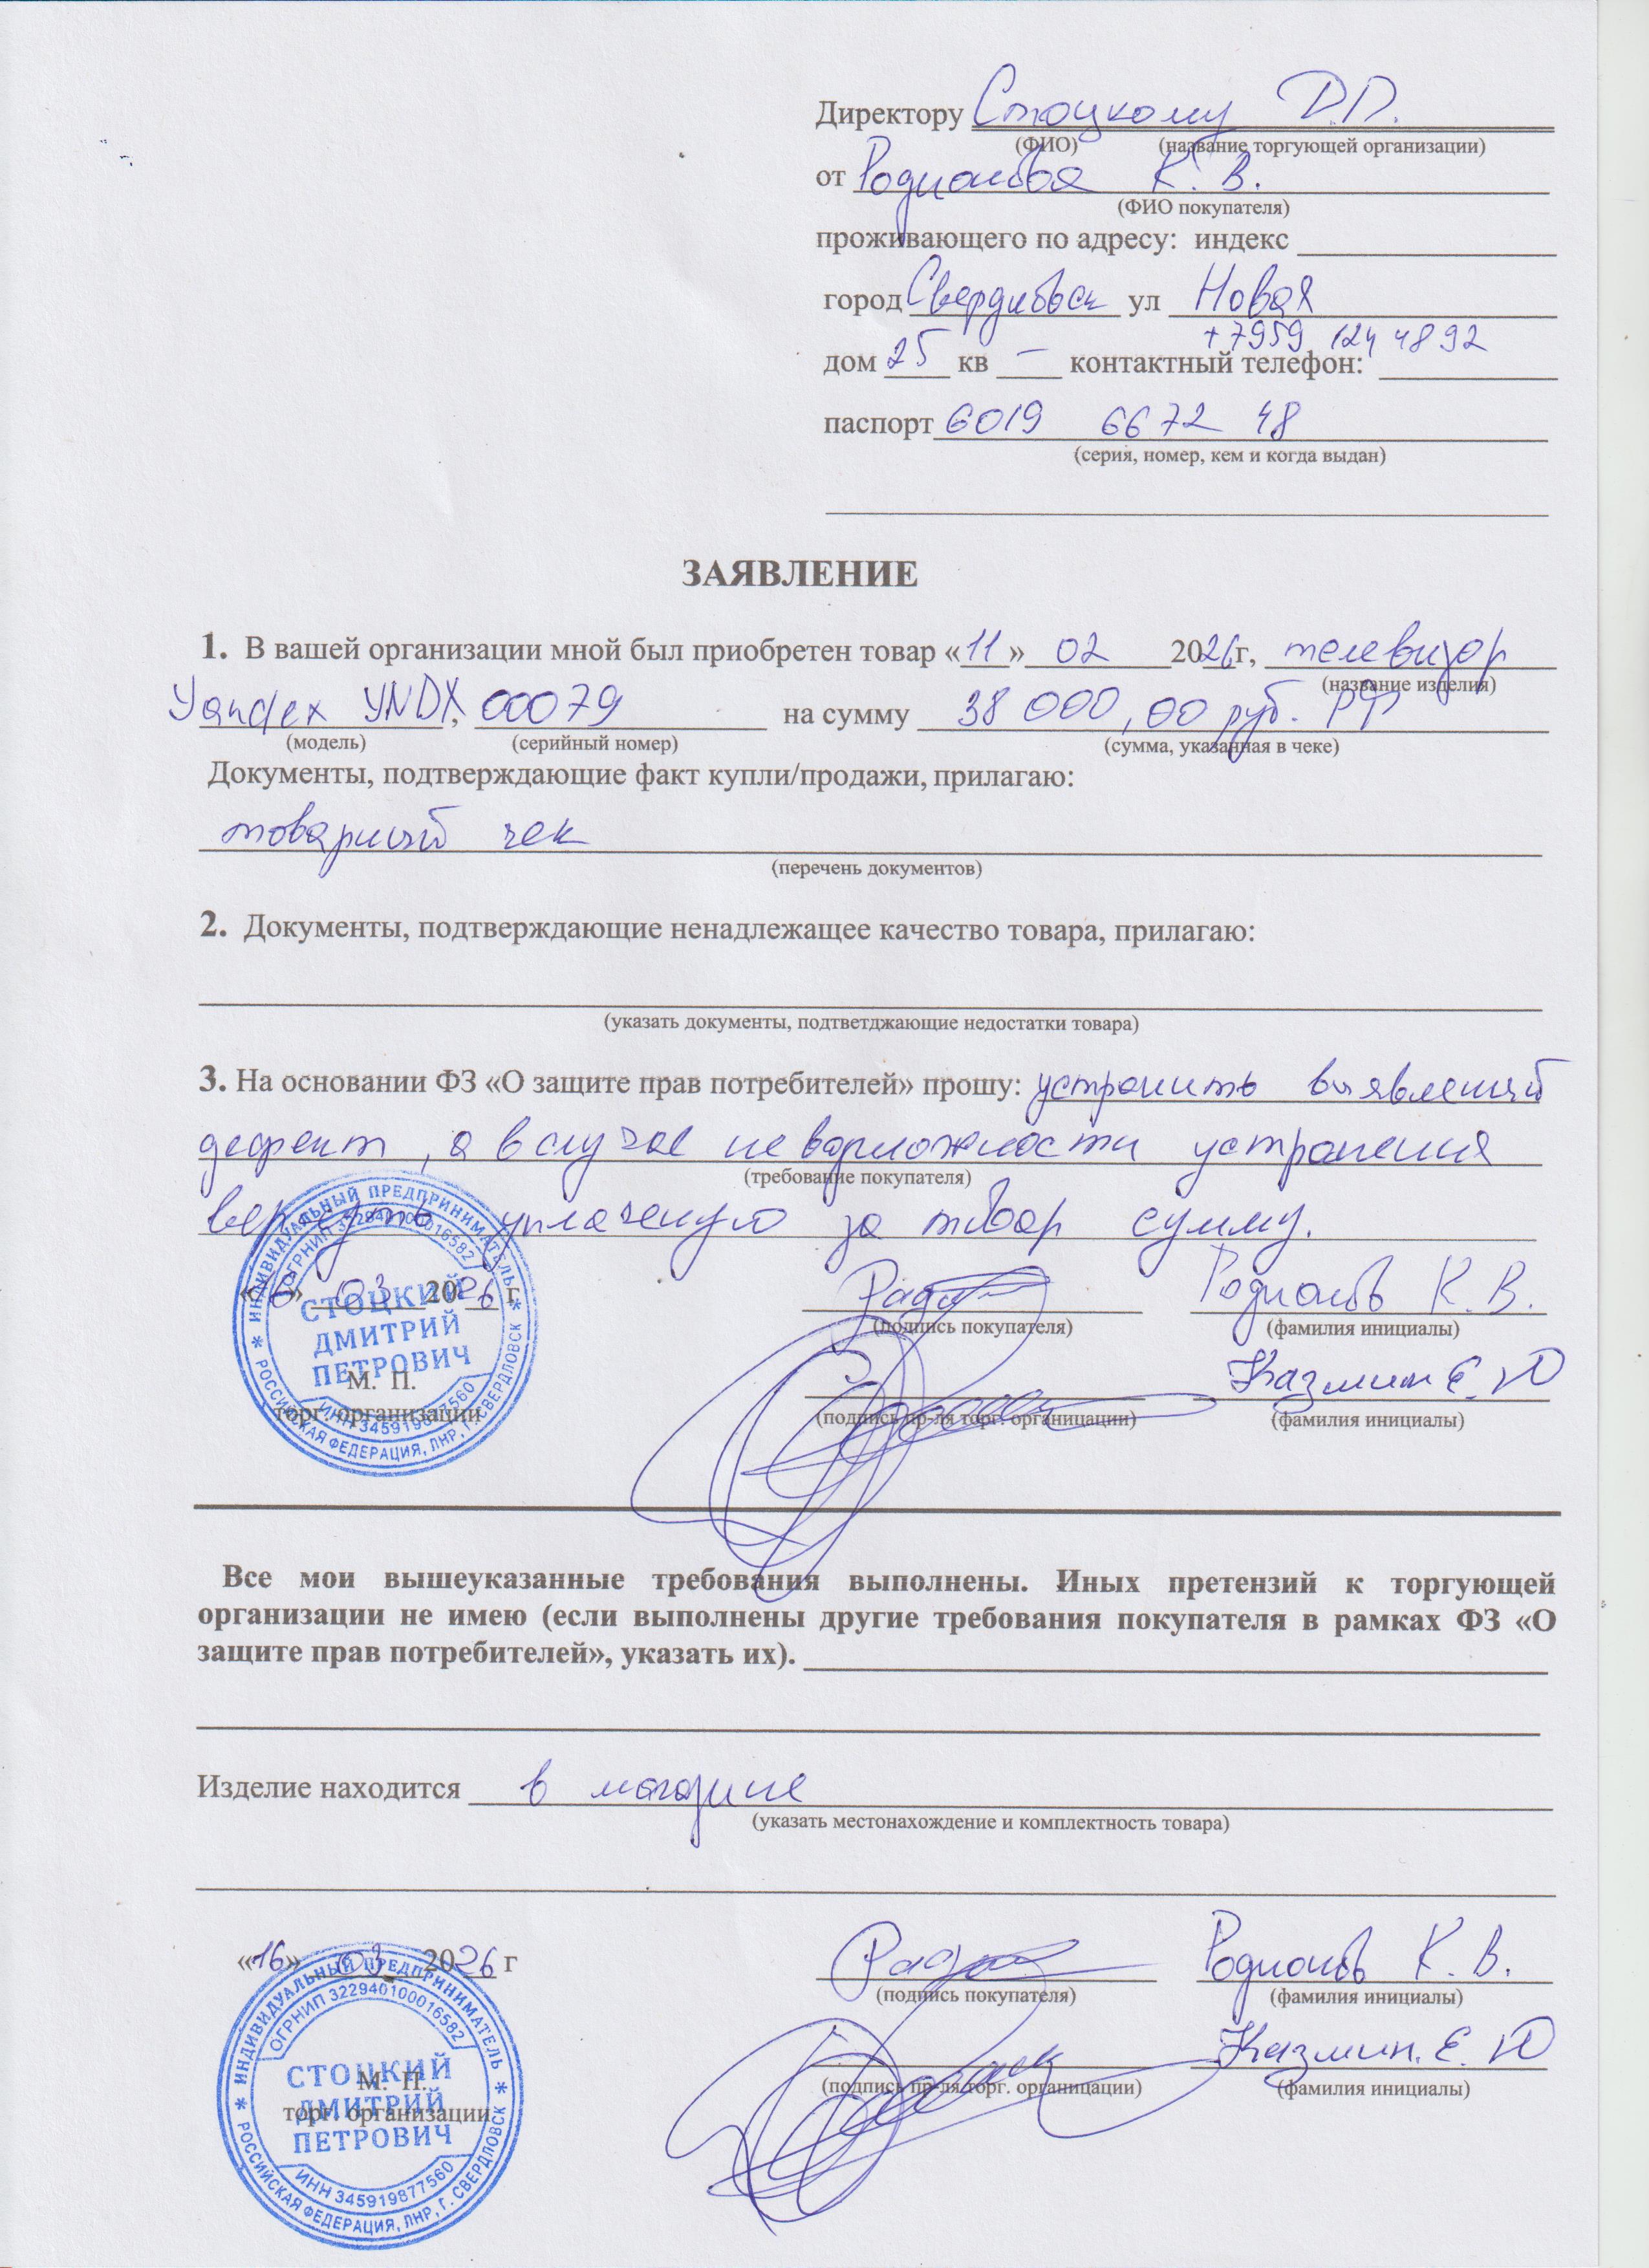 Директору Стоцкому Д.П.
(ФИО) (название торгующей организации)
от Родионова К. В.
(ФИО покупателя)
проживающего по адресу: индекс
город Свердловск ул Новая
+7959 124 48 92
дом 25 кв — контактный телефон:
паспорт 6019 6672 48
(серия, номер, кем и когда выдан)
ЗАЯВЛЕНИЕ
1. В вашей организации мной был приобретен товар «11» 02 2026 г, телевизор
(название изделия)
Yandex YNDX, 00079 на сумму 38 000,00 руб. РФ
(модель) (серийный номер) (сумма, указанная в чеке)
Документы, подтверждающие факт купли/продажи, прилагаю:
товарный чек
(перечень документов)
2. Документы, подтверждающие ненадлежащее качество товара, прилагаю:
(указать документы, подтветджающие недостатки товара)
3. На основании ФЗ «О защите прав потребителей» прошу: устранить выявленный
дефект, а в случае невозможности устранения
(требование покупателя)
вернуть уплаченую за товар сумму.
«16» 03 2026 г Родионов К. В.
(подпись покупателя) (фамилия инициалы)
Казмин Е. Ю
М. П.
торг. организации (подпись пр-ля торг. органицации) (фамилия инициалы)
ИНДИВИДУАЛЬНЫЙ ПРЕДПРИНИМАТЕЛЬ
ОГРНИП 322940100016582
СТОЦКИЙ
ДМИТРИЙ
ПЕТРОВИЧ
ИНН 345919877560
РОССИЙСКАЯ ФЕДЕРАЦИЯ, ЛНР, Г. СВЕРДЛОВСК
Все мои вышеуказанные требования выполнены. Иных претензий к торгующей
организации не имею (если выполнены другие требования покупателя в рамках ФЗ «О
защите прав потребителей», указать их).
Изделие находится в магазине
(указать местонахождение и комплектность товара)
«16» 03 2026 г Родионов К. В.
(подпись покупателя) (фамилия инициалы)
Казмин. Е. Ю
М. П. (подпись пр-ля торг. органицации) (фамилия инициалы)
торг. организации
ИНДИВИДУАЛЬНЫЙ ПРЕДПРИНИМАТЕЛЬ
ОГРНИП 322940100016582
СТОЦКИЙ
ДМИТРИЙ
ПЕТРОВИЧ
ИНН 345919877560
РОССИЙСКАЯ ФЕДЕРАЦИЯ, ЛНР, Г. СВЕРДЛОВСК